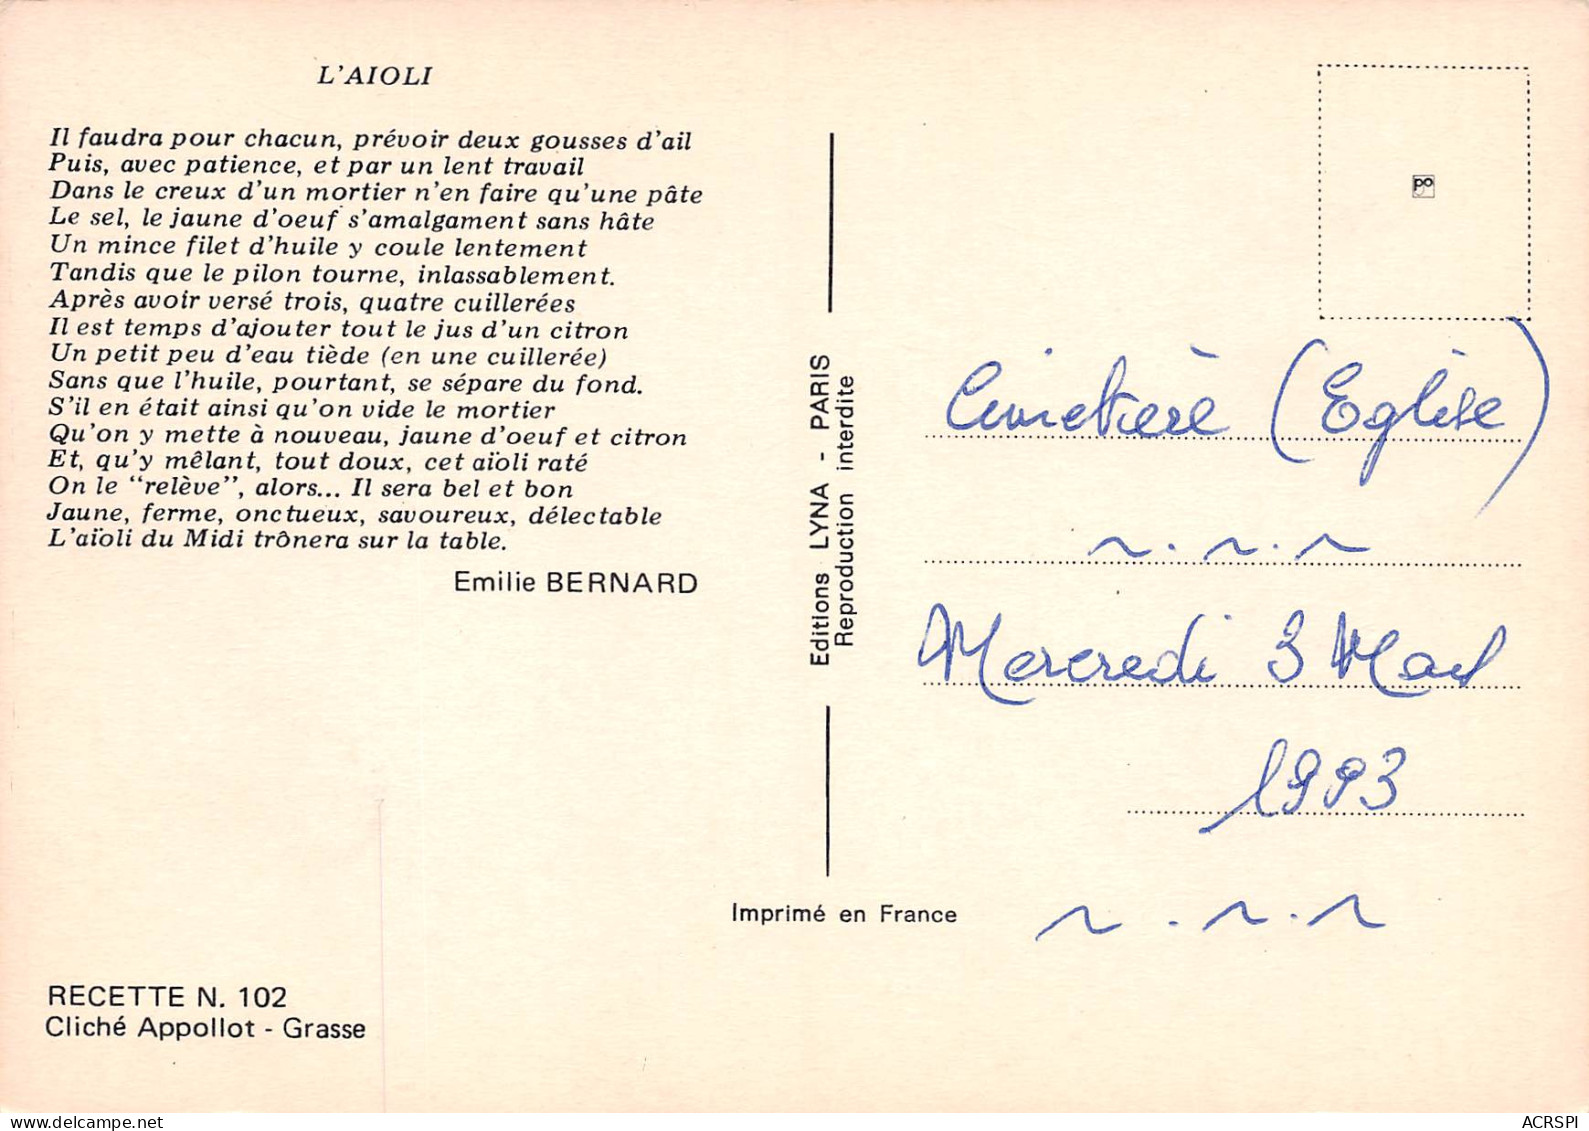 L'AIOLI
Il faudra pour chacun, prévoir deux gousses d'ail
Puis, avec patience, et par un lent travail
Dans le creux d'un mortier n'en faire qu'une pâte
Le sel, le jaune d'oeuf s'amalgament sans hâte
Un mince filet d'huile y coule lentement
Tandis que le pilon tourne, inlassablement.
Après avoir versé trois, quatre cuillerées
Il est temps d'ajouter tout le jus d'un citron
Un petit peu d'eau tiède (en une cuillerée)
Sans que l'huile, pourtant, se sépare du fond.
S'il en était ainsi qu'on vide le mortier
Qu'on y mette à nouveau, jaune d'oeuf et citron
Et, qu'y mêlant, tout doux, cet aïoli raté
On le "relève", alors... Il sera bel et bon
Jaune, ferme, onctueux, savoureux, délectable
L'aïoli du Midi trônera sur la table.
Emilie BERNARD
RECETTE N. 102
Cliché Appollot - Grasse
Editions LYNA - PARIS
Reproduction interdite
Imprimé en France
po
Cimetière (Eglise)
Mercredi 3 Mars
1993
ACRSPI